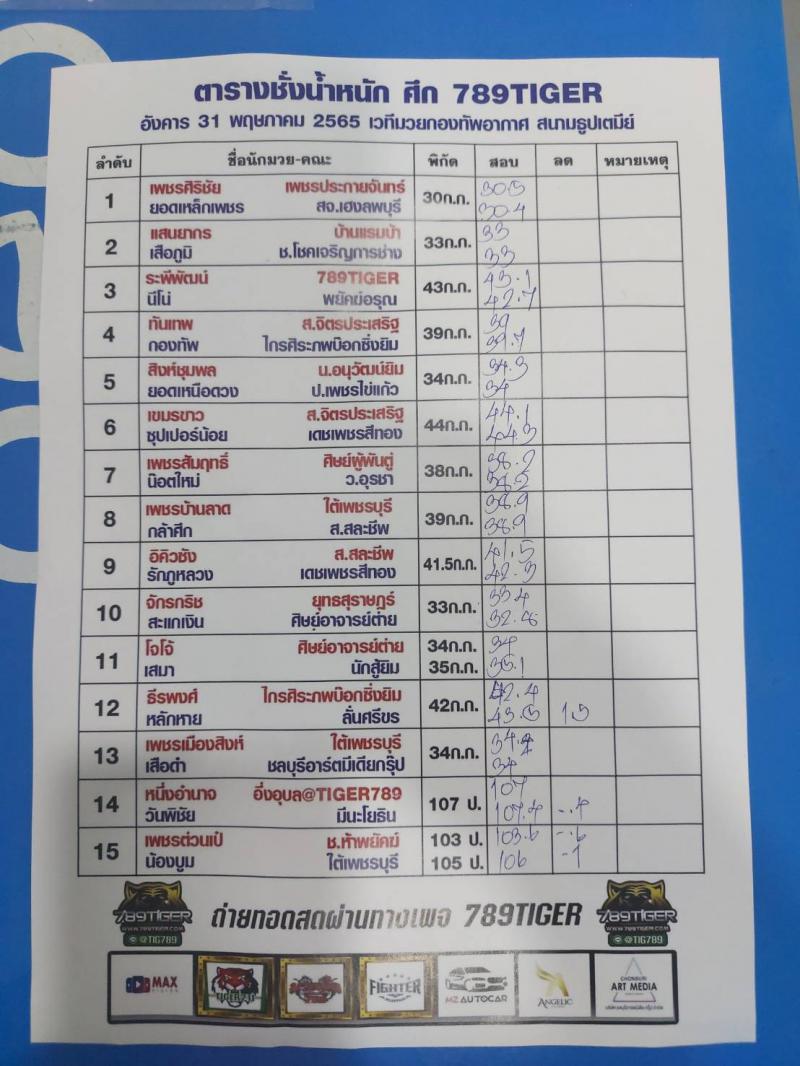 ตารางชั่งน้ำหนัก ศึก 789TIGER
อังคาร 31 พฤษภาคม 2565 เวทีมวยกองทัพอากาศ สนามธูปเตมีย์
ลำดับ ชื่อนักมวย-คณะ พิกัด สอบ ลด หมายเหตุ
1 เพชรศิริชัย เพชรประกายจันทร์ 30ก.ก. 30.5
ยอดเหล็กเพชร สจ.เฮงลพบุรี 30.4
2 แสนยากร บ้านแรมบ้า 33ก.ก. 33
เสือภูมิ ช.โชคเจริญการช่าง 33
3 ระพีพัฒน์ 789TIGER 43ก.ก. 43.1
นีโน่ พยัคฆ์อรุณ 42.7
4 ทันเทพ ส.จิตรประเสริฐ 39ก.ก. 39
กองทัพ ไกรศิระภพบ๊อกซิ่งยิม 39.7
5 สิงห์ชุมพล น.อนุวัฒน์ยิม 34ก.ก. 34.3
ยอดเหนือดวง ป.เพชรไข่แก้ว 34
6 เขมรขาว ส.จิตรประเสริฐ 44ก.ก. 44.1
ซุปเปอร์น้อย เดชเพชรสีทอง 44.3
7 เพชรสัมฤทธิ์ ศิษย์ผู้พันตู่ 38ก.ก. 38.2
น๊อตใหม่ ว.อุรชา 38.2
8 เพชรบ้านลาด ใต้เพชรบุรี 39ก.ก. 38.9
กล้าศึก ส.สละชีพ 38.9
9 อิคิวซัง ส.สละชีพ 41.5ก.ก. 41.5
รักภูหลวง เดชเพชรสีทอง 42.3
10 จักรกริช ยุทธสุราษฎร์ 33ก.ก. 33.4
สะแกเงิน ศิษย์อาจารย์ต่าย 32.8
11 โจโจ้ ศิษย์อาจารย์ต่าย 34ก.ก. 34
เสมา นักสู้ยิม 35ก.ก. 35.1
12 ธีรพงศ์ ไกรศิระภพบ๊อกซิ่งยิม 42ก.ก. 42.4
หลักหาย ลั่นศรีขร 43.5 1.5
13 เพชรเมืองสิงห์ ใต้เพชรบุรี 34ก.ก.
เสือดำ ชลบุรีอาร์ตมีเดียกรุ๊ป 34
14 หนึ่งอำนาจ อึ่งอุบล@TIGER789 107 ป. 107
วันพิชัย มีนะโยธิน 107.4 -.4
15 เพชรต่วนเป๋ ช.ห้าพยัคฆ์ 103 ป. 103.6 -.6
น้องบูม ใต้เพชรบุรี 105 ป. 106 -1
789TIGER
WWW.789TIGER.COM
@TIG789
ถ่ายทอดสดผ่านทางเพจ 789TIGER
789TIGER
WWW.789TIGER.COM
@TIG789
MAX
FIGHTER
MZ AUTOCAR
ANGELIC
CHONBURI
ART MEDIA